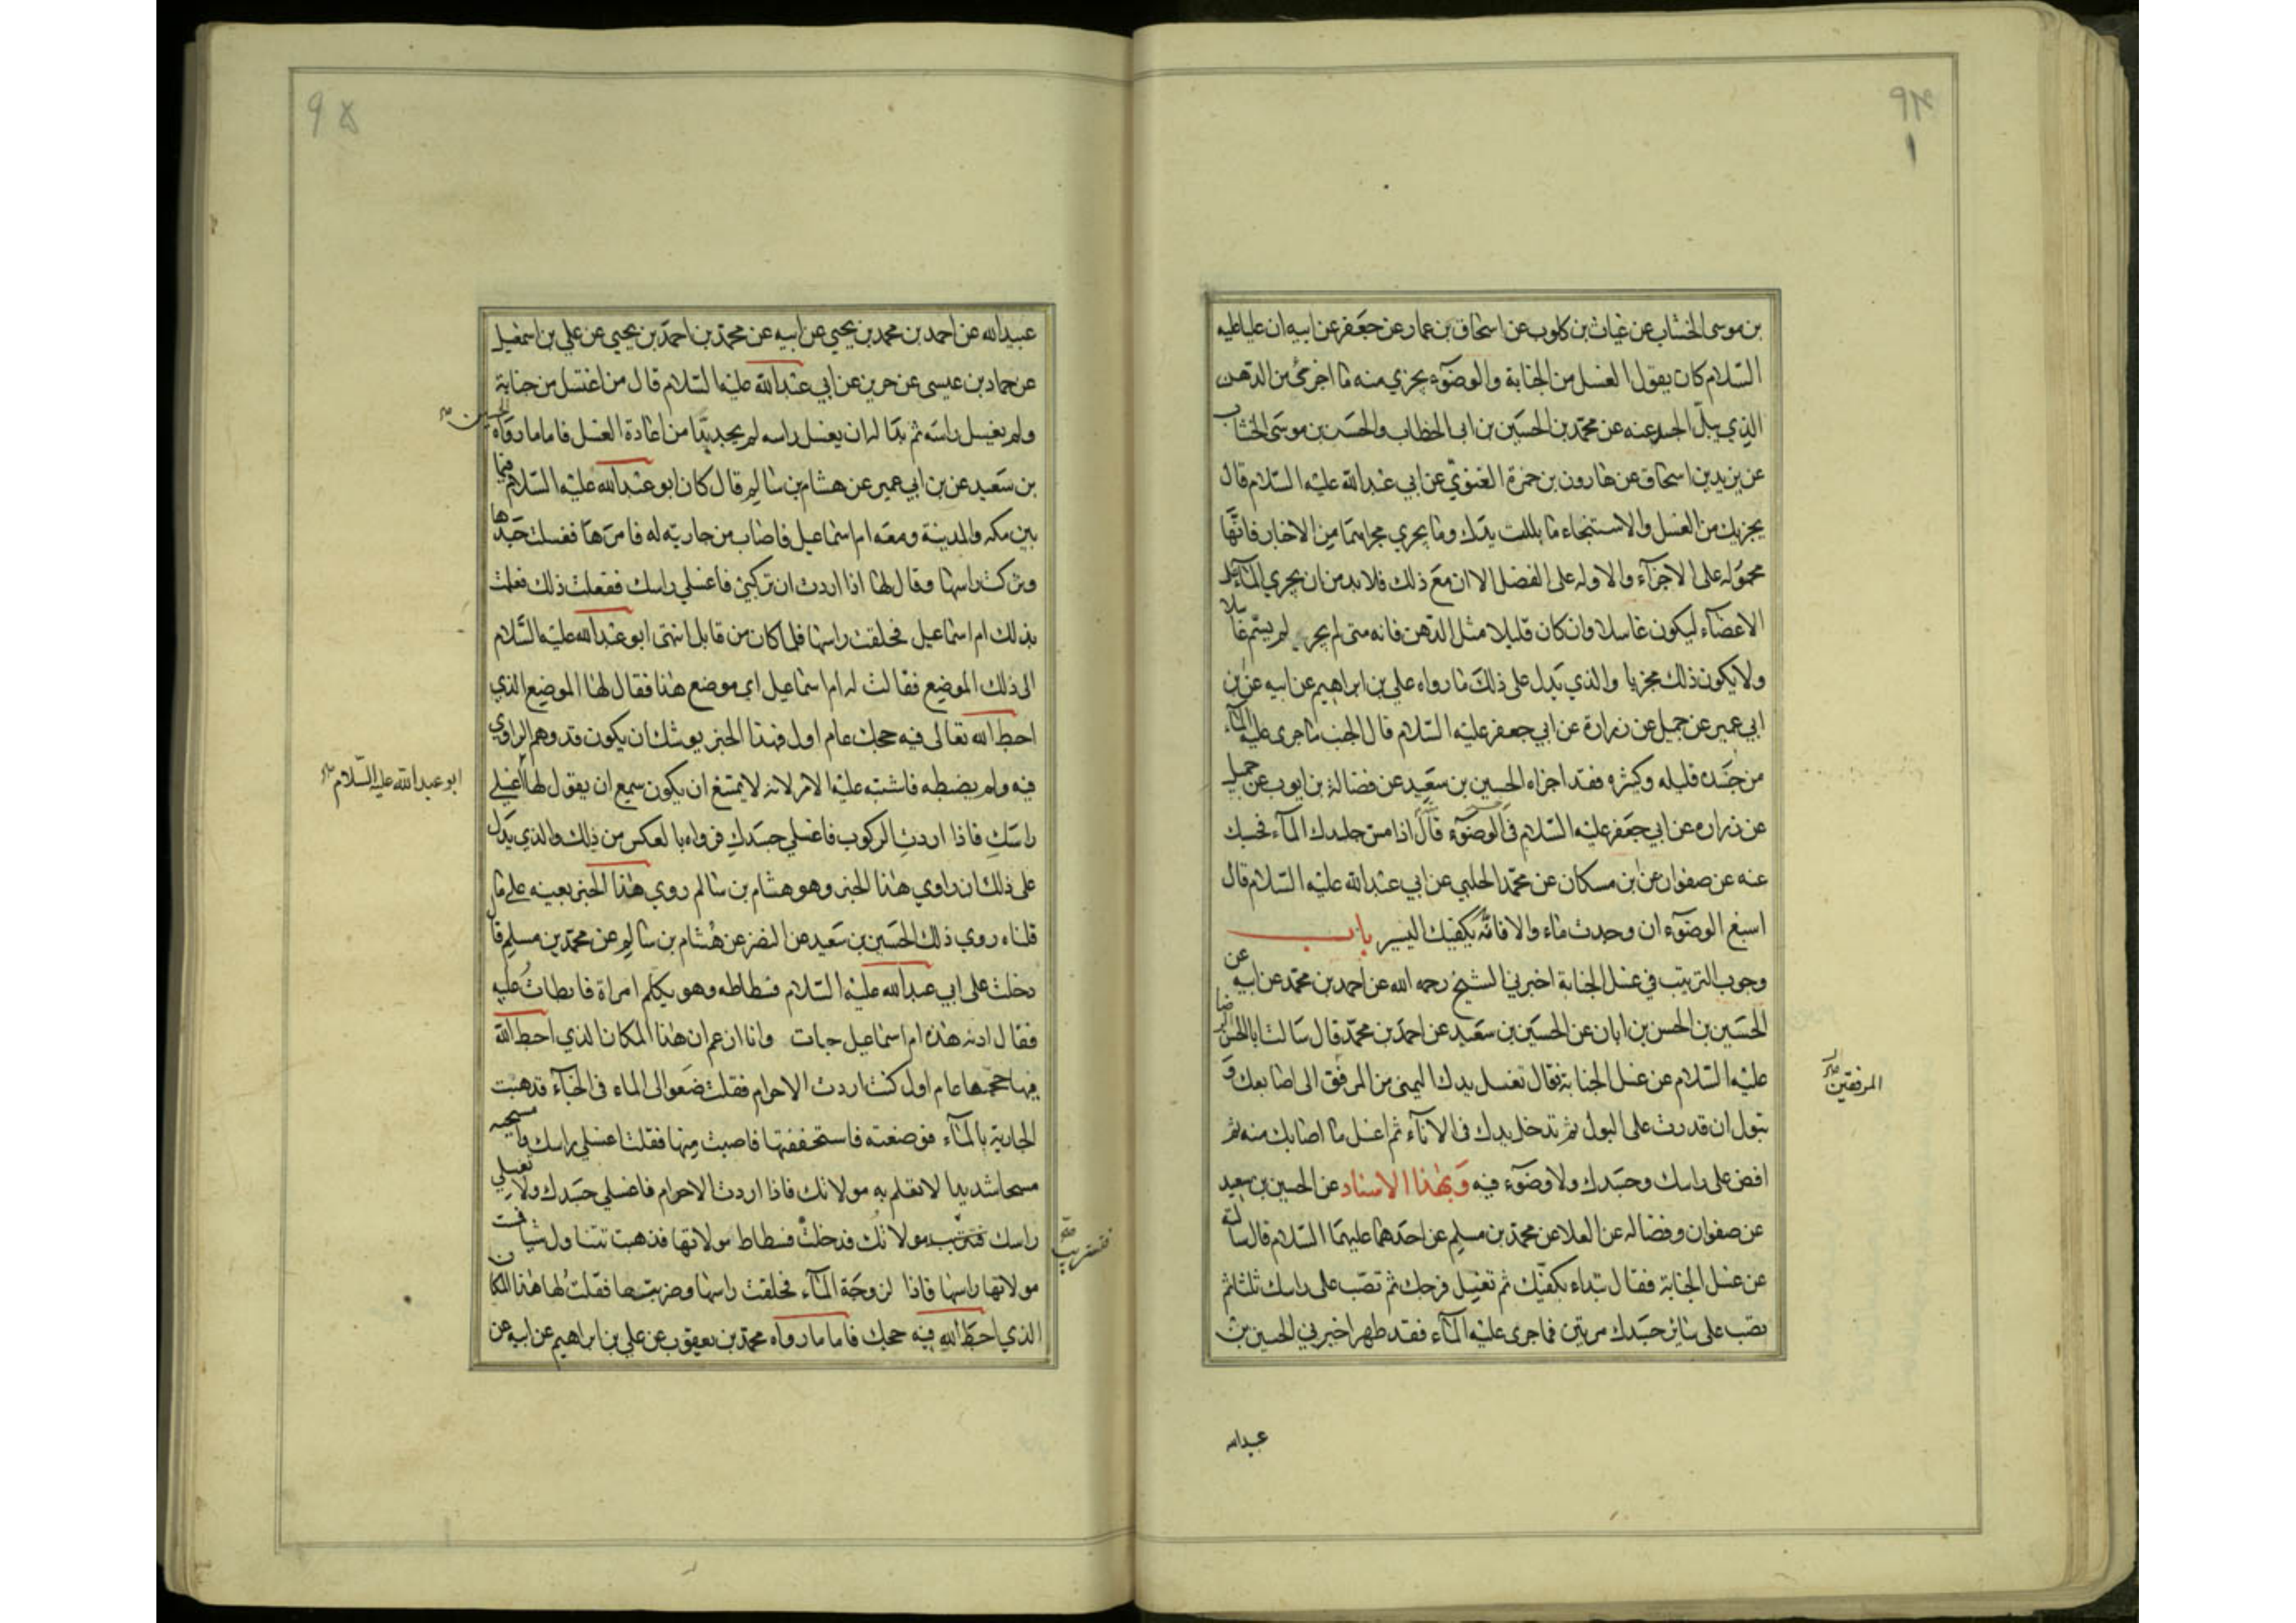 بن موسى الخشاب عن غياث بن كلوب عن اسحاق بن عمار عن جعفر عن ابيه ان عليا عليه
السلام كان يقول الغسل من الجنابة والوضوء يجزي منه ما اجزئ من الدهن
الذي يبل الجسد عنه عن محمد بن الحسين بن ابي الخطاب والحسن بن موسى الخشاب
عن يزيد بن اسحاق عن هارون بن حمزة الغنوي عن ابي عبدالله عليه السلام قال
يجزيك من الغسل والاستنجاء ما بللت يدك وما يجري مجراهما من الاخبار فانها
محمولة على الاجزآء والاوله على الفضل الا ان مع ذلك فلا بد من ان يجري المآء على
الاعضآء ليكون غاسلا وان كان قليلا مثل الدهن فانه متى لم يجر لم يسم غاسلا
ولا يكون ذلك مجزيا والذي يدل على ذلك ما رواه علي بن ابراهيم عن ابيه عن بن
ابي عمير عن جميل عن زرارة عن ابي جعفر عليه السلام قال الجنب ما جرى عليه المآء
من جسده قليله وكثره فقد اجزاه الحسين بن سعيد عن فضالة بن ايوب عن جميل
عن زراره عن ابي جعفر عليه السلام في الوضوء قال اذا مس جلدك المآء فحسبك
عنه عن صفوان عن بن مسكان عن محمد الحلبي عن ابي عبدالله عليه السلام قال
اسبغ الوضوء ان وجدت ماء والا فانه يكفيك اليسير باب
وجوب الترتيب في غسل الجنابة اخبرني الشيخ رحمه الله عن احمد بن محمد عن ابيه عن
الحسين بن الحسن بن ابان عن الحسين بن سعيد عن احمد بن محمد قال سالت ابا الحسن الرضا
عليه السلام عن غسل الجنابة فقال تغسل يدك اليمنى من المرفق الى اصابعك و
المرفقين
تبول ان قدرت على البول ثم تدخل يدك في الانآء ثم اغسل ما اصابك منه ثم
افض على راسك وجسدك ولا وضوء فيه وبهذا الاسناد عن الحسين بن سعيد
عن صفوان وفضاله عن العلا عن محمد بن مسلم عن احدهما عليهما السلام قال سالته
عن غسل الجنابة فقال تبداء بكفيك ثم تغسل فرجك ثم تصب على راسك ثلثا ثم
تصب على سائر جسدك مرتين فما جرى عليه المآء فقد طهر اخبرني الحسين بن
عبيدالله
عبيدالله عن احمد بن محمد بن يحيي عن ابيه عن محمد بن احمد بن يحيي عن علي بن اسمعيل
عن حماد بن عيسى عن حريز عن ابي عبدالله عليه السلام قال من اغتسل من جنابة
ولم يغسل راسه ثم بدا له ان يغسل راسه لم يجد بدا من اعادة الغسل فاما ما رواه الحسين
بن سعيد عن بن ابي عمير عن هشام بن سالم قال كان ابو عبدالله عليه السلام فيما
بين مكه والمدينة ومعه ام اسماعيل فاصاب من جارية له فامرها فغسلت جسدها
وتركت راسها وقال لها اذا اردت ان تركبي فاغسلي راسك ففعلت ذلك فعلمت
بذلك ام اسماعيل فحلقت راسها فلما كان من قابل انتهى ابو عبدالله عليه السلام
الى ذلك الموضع فقالت له ام اسماعيل اي موضع هذا فقال لها الموضع الذي
احبط الله تعالى فيه حجك عام اول فهذا الخبر يوشك ان يكون قد وهم الراوي
فيه ولم يضبطه فاشتبه عليه الامر لانه لا يمتنع ان يكون سمع ان يقول لها اغسلي
ابو عبدالله عليه السلام
راسك فاذا اردت الركوب فاغسلي جسدك فرواه بالعكس من ذلك والذي يدل
على ذلك ان راوي هذا الخبر وهو هشام بن سالم روي هذا الخبر بعينه على ما
قلناه روي ذلك الحسين بن سعيد عن النضر عن هشام بن سالم عن محمد بن مسلم قا
دخلت على ابي عبدالله عليه السلام فسطاطه وهو يكلم امراة فابطات عليه
فقال ادنه هذه ام اسماعيل جات وانا ازعم ان هذا المكان الذي احبط الله
فيها حجها عام اول كنت اردت الاحرام فقلت ضعوا الى الماء في الخبآء فذهبت
الجارية بالمآء فوضعته فاستخففتها فاصبت منها فقلت اغسلي راسك وامسحيه
مسحا شديدا لا تعلم به مولاتك فاذا اردت الاحرام فاغسلي جسدك ولا تغسلي
راسك مولاتك فدخلت فسطاط مولاتها فذهبت تتناول شيا فمست
فتستريب
مولاتها راسها فاذا لزوجة المآء فحلقت راسها وضربتها فقلت لها هذا المكان
الذي احبط الله فيه حجك فاما ما رواه محمد بن يعقوب عن علي بن ابراهيم عن ابيه عن